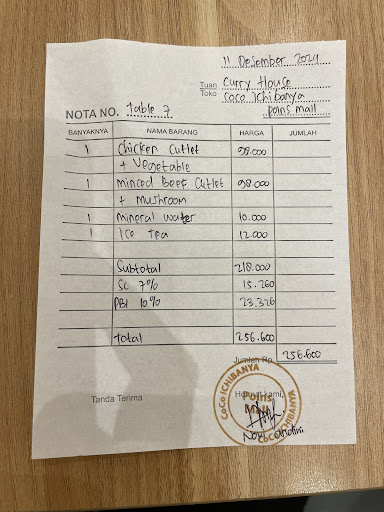 11 Desember 2024
Tuan Curry House
Toko CoCo Ichibanya
NOTA NO. Table 7 Poins Mall
BANYAKNYA NAMA BARANG HARGA JUMLAH
1 Chicken Cutlet 98.000
+ Vegetable
1 Minced Beef Cutlet 98.000
+ Mushroom
1 Mineral Water 10.000
1 Ice Tea 12.000
Subtotal 218.000
SC 7% 15.260
PB1 10% 23.326
Total 256.600
Jumlah Rp. 256.600
Tanda Terima Hormat kami,
CoCo ICHIBANYA
Poins
Mall
CoCo ICHIBANYA